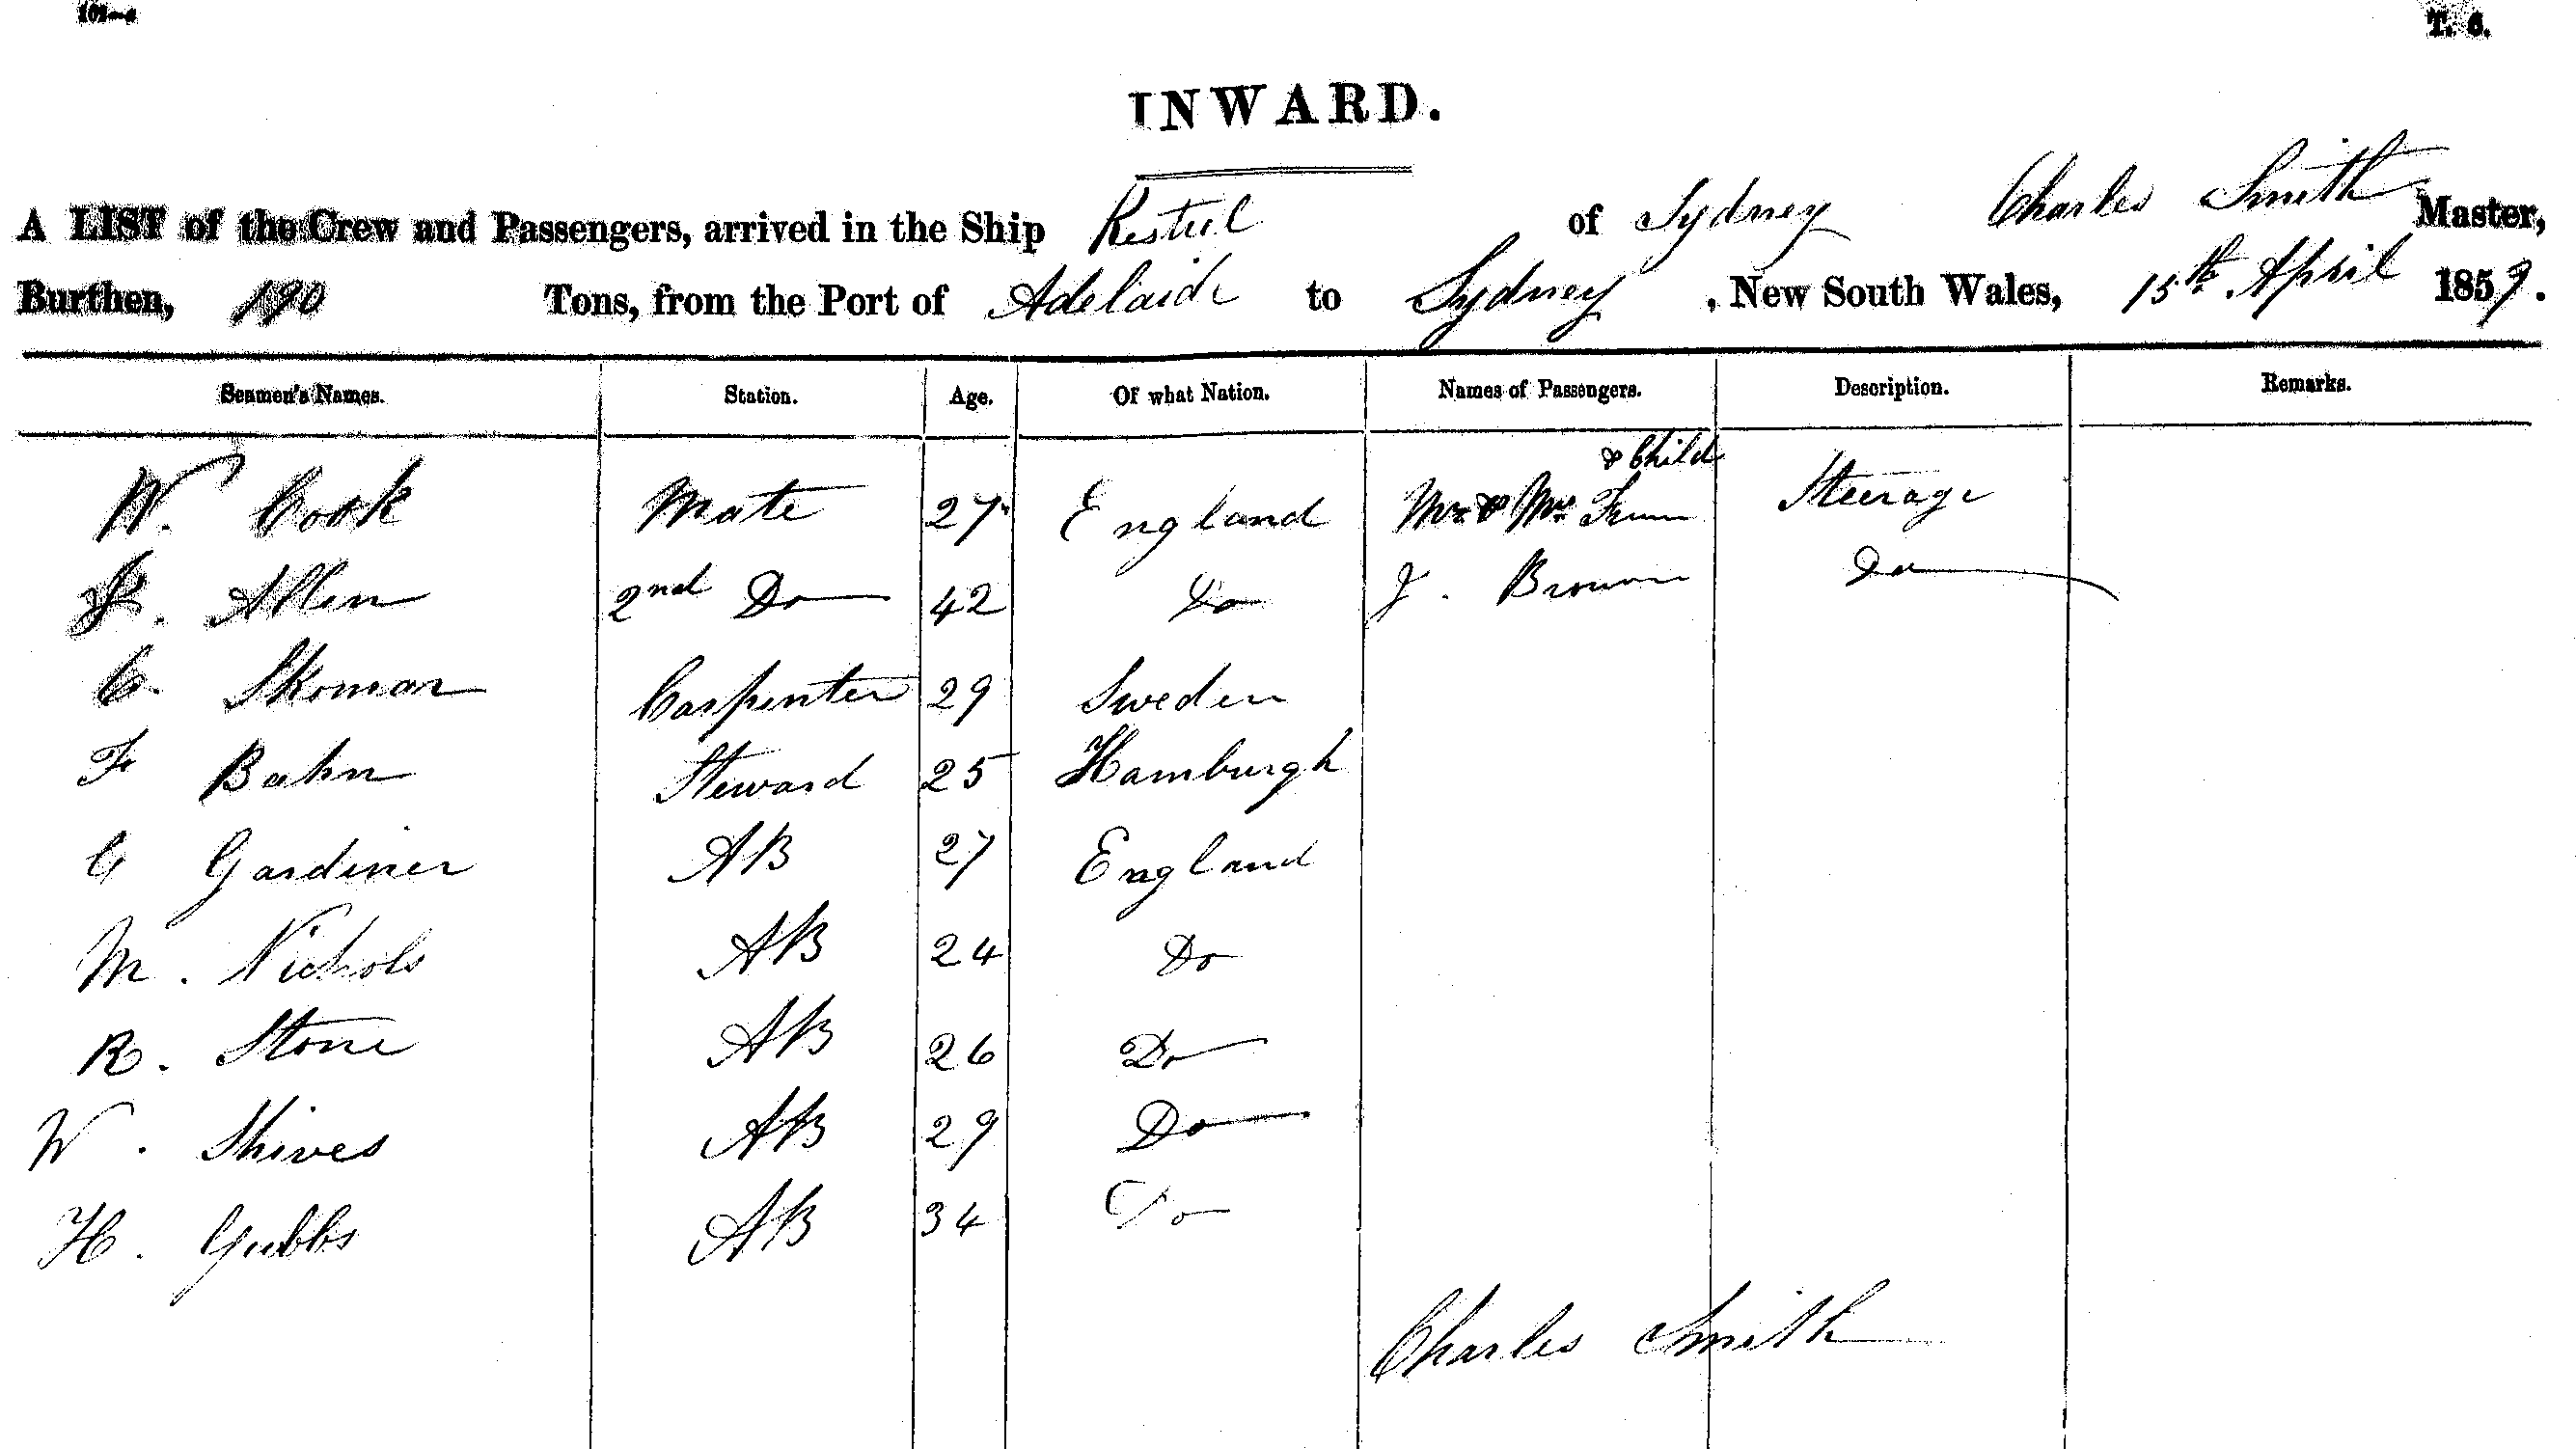 T. 6.
INWARD.
A LIST of the Crew and Passengers, arrived in the Ship Kestrel of Sydney Charles Smith Master,
Burthen, 190 Tons, from the Port of Adelaide to Sydney, New South Wales, 15th April 1859.
Seamen's Names. Station. Age. Of what Nation. Names of Passengers. Description. Remarks.
& Child
W. Cook Mate 27 England Mr & Mrs Steerage
Allen 2nd Do 42 Do J. Brown Do
C. Skoman Carpenter 29 Sweden
F Bahn Steward 25 Hamburgh
C Gardiner AB 27 England
M. Nichols AB 24 Do
R. Stone AB 26 Do
W. Shives AB 29 Do
H. Gubbs AB 34 Do
Charles Smith